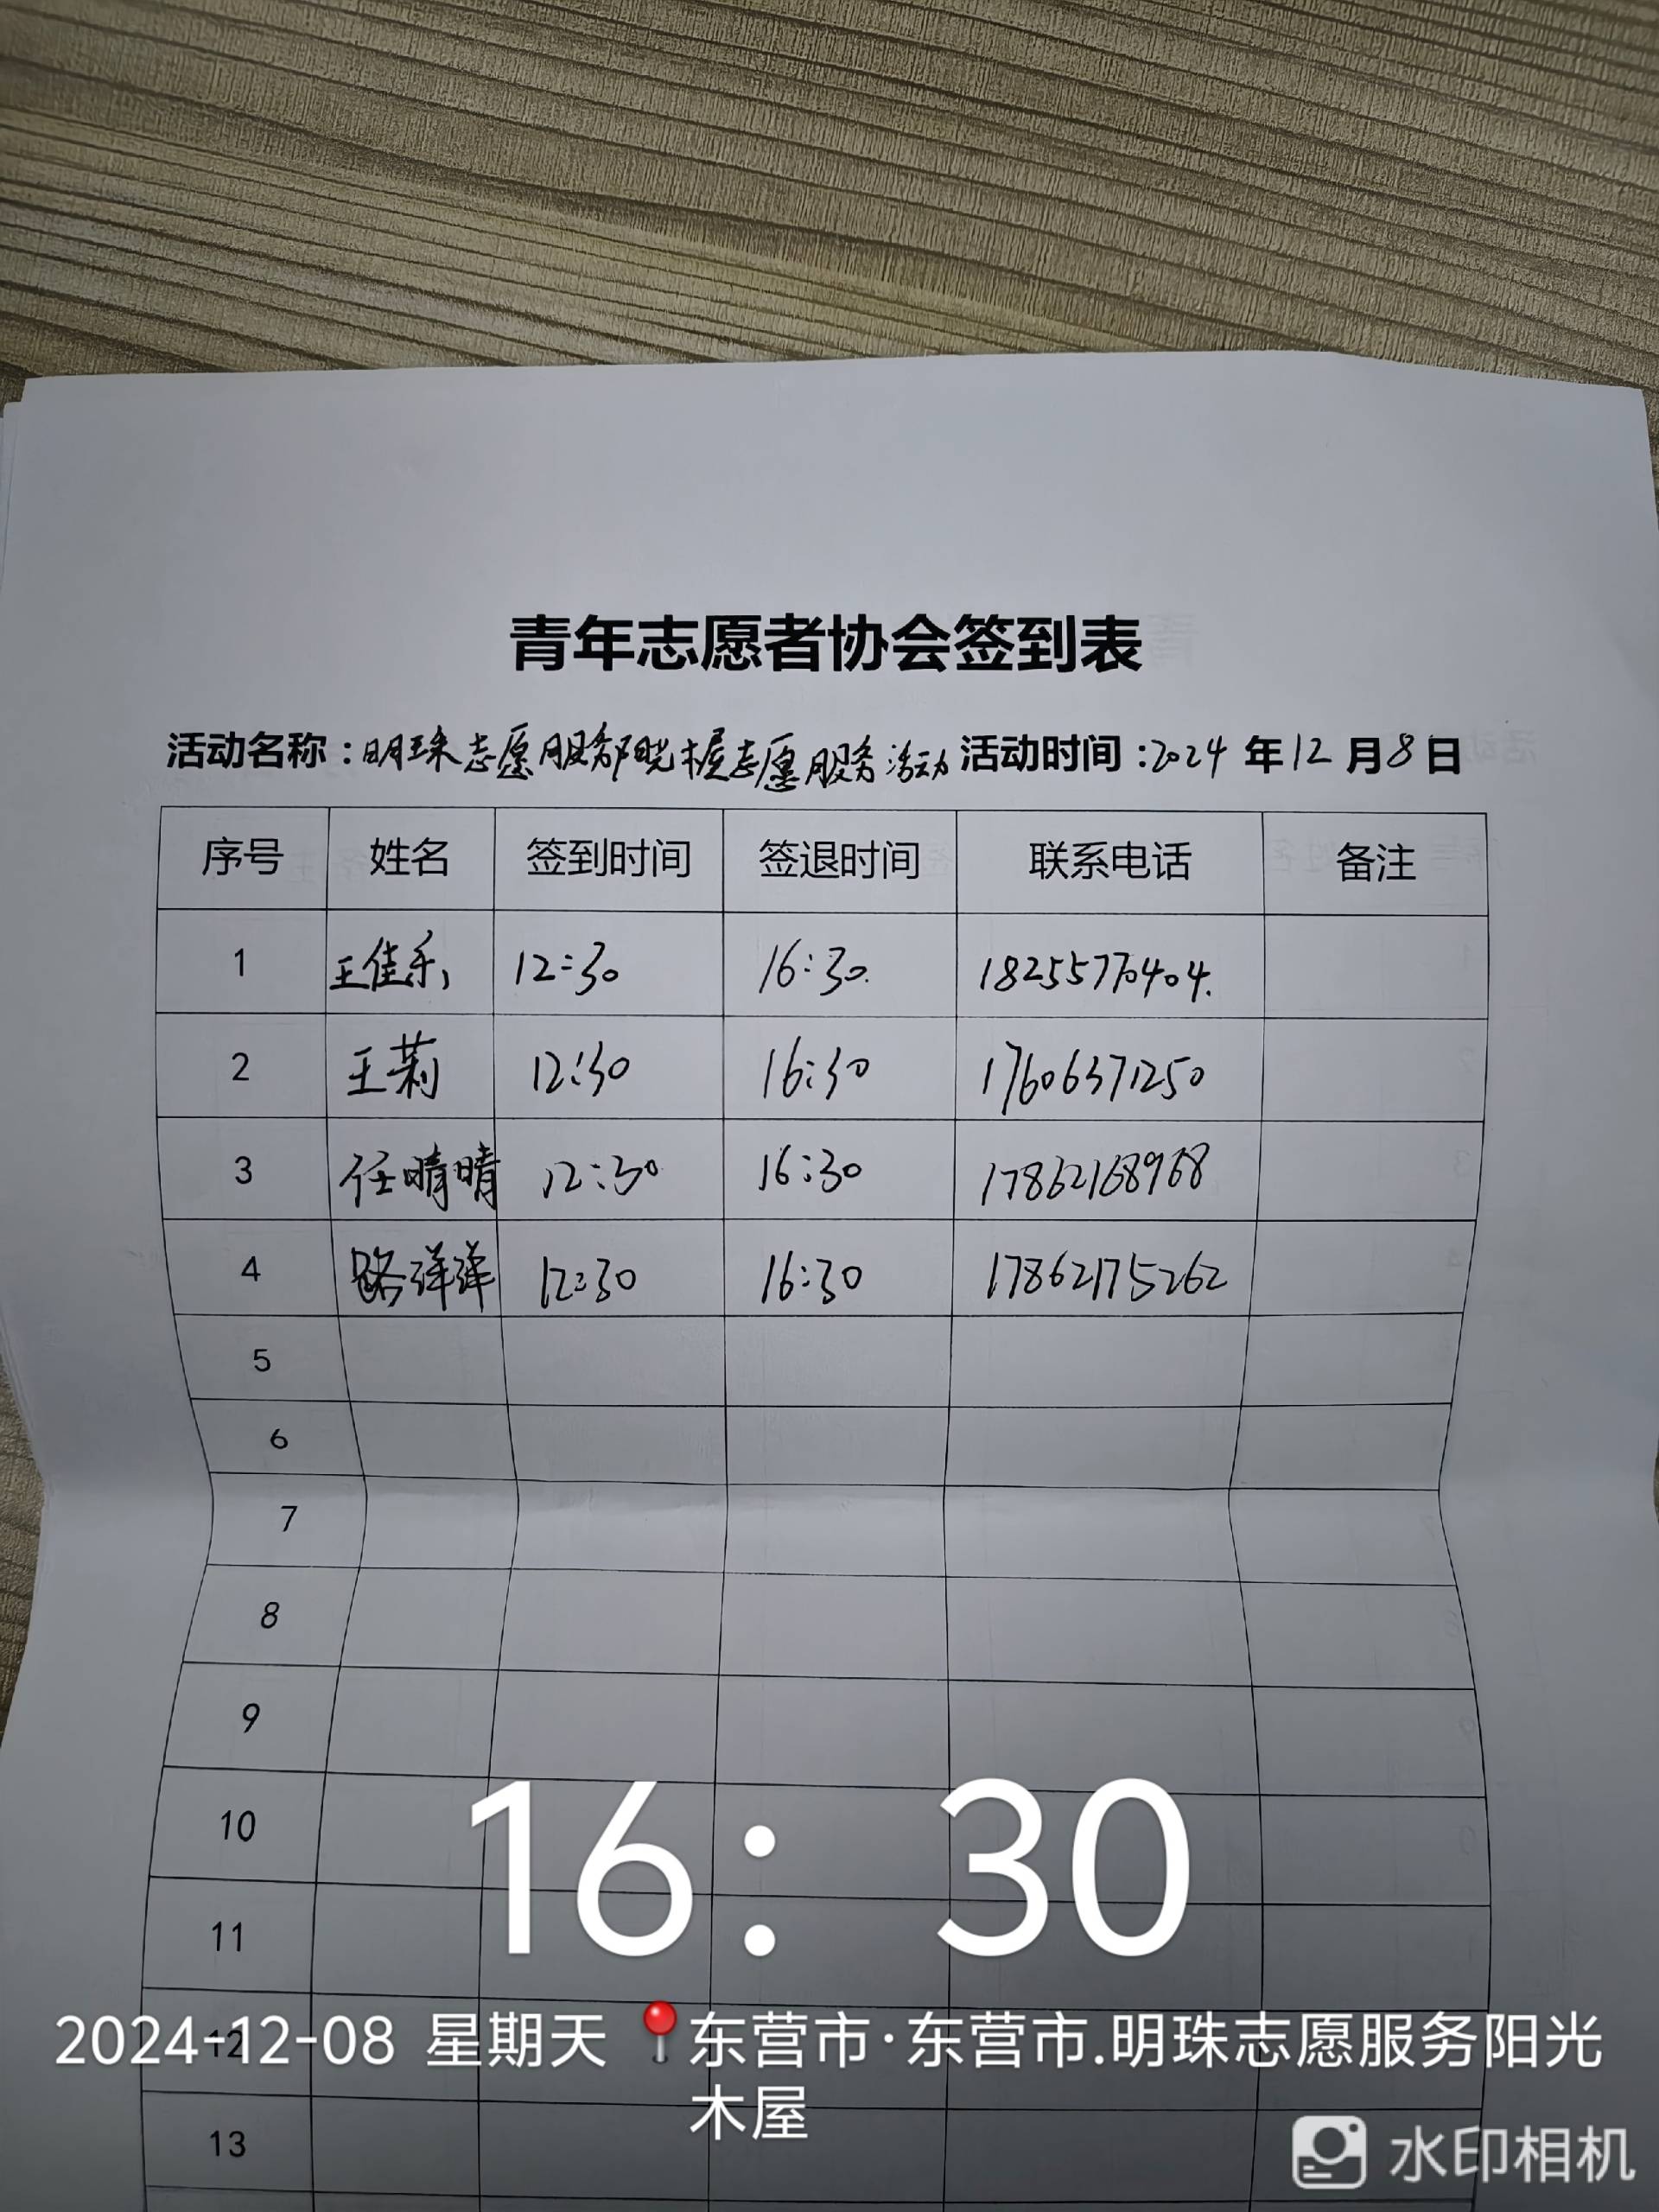 青年志愿者协会签到表
活动名称:明珠志愿服务阳光木屋志愿服务活动 活动时间:2024年12月8日
序号 姓名 签到时间 签退时间 联系电话 备注
1 王佳乐 12:30 16:30. 18255770404.
2 王莉 12:30 16:30 17606371250
3 任晴晴 12:30 16:30 17862168968
4 路洋洋 12:30 16:30 17862175262
5
6
7
8
9
10
11
12
13
16:30
2024-12-08 星期天 东营市·东营市.明珠志愿服务阳光
木屋
水印相机